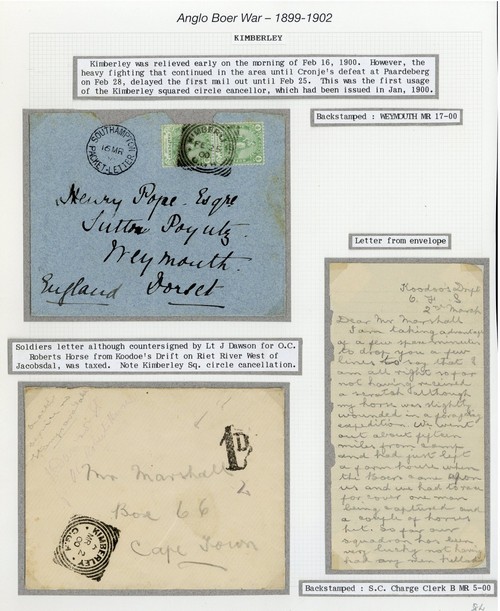 Anglo Boer War – 1899-1902
KIMBERLEY
Kimberley was relieved early on the morning of Feb 16, 1900. However, the
heavy fighting that continued in the area until Cronje's defeat at Paardeberg
on Feb 28, delayed the first mail out until Feb 25. This was the first usage
of the Kimberley squared circle cancellor, which had been issued in Jan, 1900.
Backstamped : WEYMOUTH MR 17-00
SOUTHAMPTON
16 MR
PACKET-LETTER
KIMBERLEY
FE 25
00
Henry Pope Esqre
Sutton Poyntz
Weymouth.
England Dorset
Letter from envelope
Soldiers letter although countersigned by Lt J Dawson for O.C.
Roberts Horse from Koodoe's Drift on Riet River West of
Jacobsdal, was taxed. Note Kimberley Sq. circle cancellation.
Koodoos Drift
O. F. S
2nd March
Dear Mr Marshall
I am taking advantage
of a few spare minutes
to drop you a few
lines to say that I
am all right so far
not having received
a scratch although
my horse was slightly
wounded in a foraging
expedition. We went
out about fifteen
miles from camp
and had just left
a farm house when
the Boers came upon
us and we had to race
for cover one man
being captured and
a couple of horses
hit. So far our
squadron has been
very lucky not having
had any men killed
1D.
Mr Marshall
Box 66
Cape Town
KIMBERLEY
MR 2
00
C.G.H
Backstamped : S.C. Charge Clerk B MR 5-00